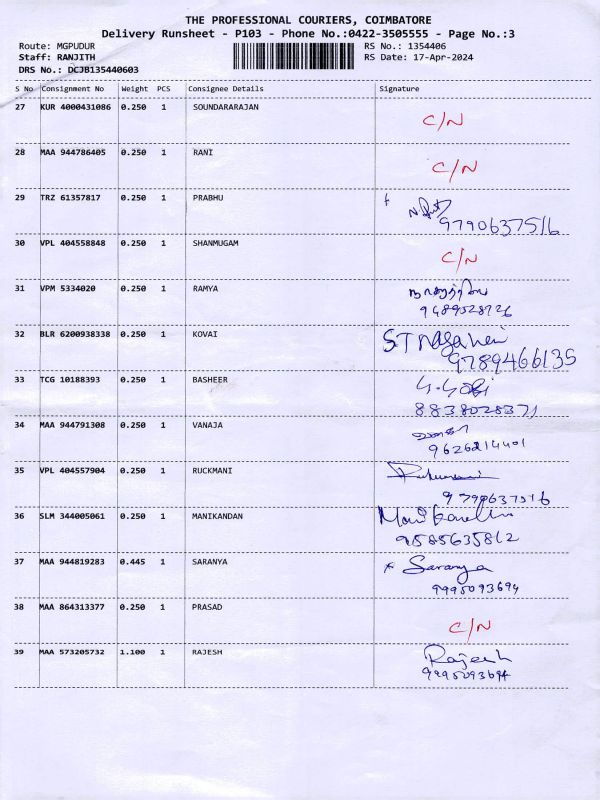 THE PROFESSIONAL COURIERS, COIMBATORE
Delivery Runsheet - P103 - Phone No.:0422-3505555 - Page No.:3
Route: MGPUDUR RS No.: 1354406
Staff: RANJITH RS Date: 17-Apr-2024
DRS No.: DCJB135440603
S No Consignment No Weight PCS Consignee Details Signature
27 KUR 4000431086 0.250 1 SOUNDARARAJAN C/N
28 MAA 944786405 0.250 1 RANI C/N
29 TRZ 61357817 0.250 1 PRABHU
9790637516
30 VPL 404558848 0.250 1 SHANMUGAM C/N
31 VPM 5334020 0.250 1 RAMYA
32 BLR 6200938338 0.250 1 KOVAI
9789466135
33 TCG 10188393 0.250 1 BASHEER
8838028371
34 MAA 944791308 0.250 1 VANAJA
9626214401
35 VPL 404557904 0.250 1 RUCKMANI
36 SLM 344005061 0.250 1 MANIKANDAN
9585635812
37 MAA 944819283 0.445 1 SARANYA Saranya
9995093694
38 MAA 864313377 0.250 1 PRASAD C/N
39 MAA 573205732 1.100 1 RAJESH Rajesh
9995093694